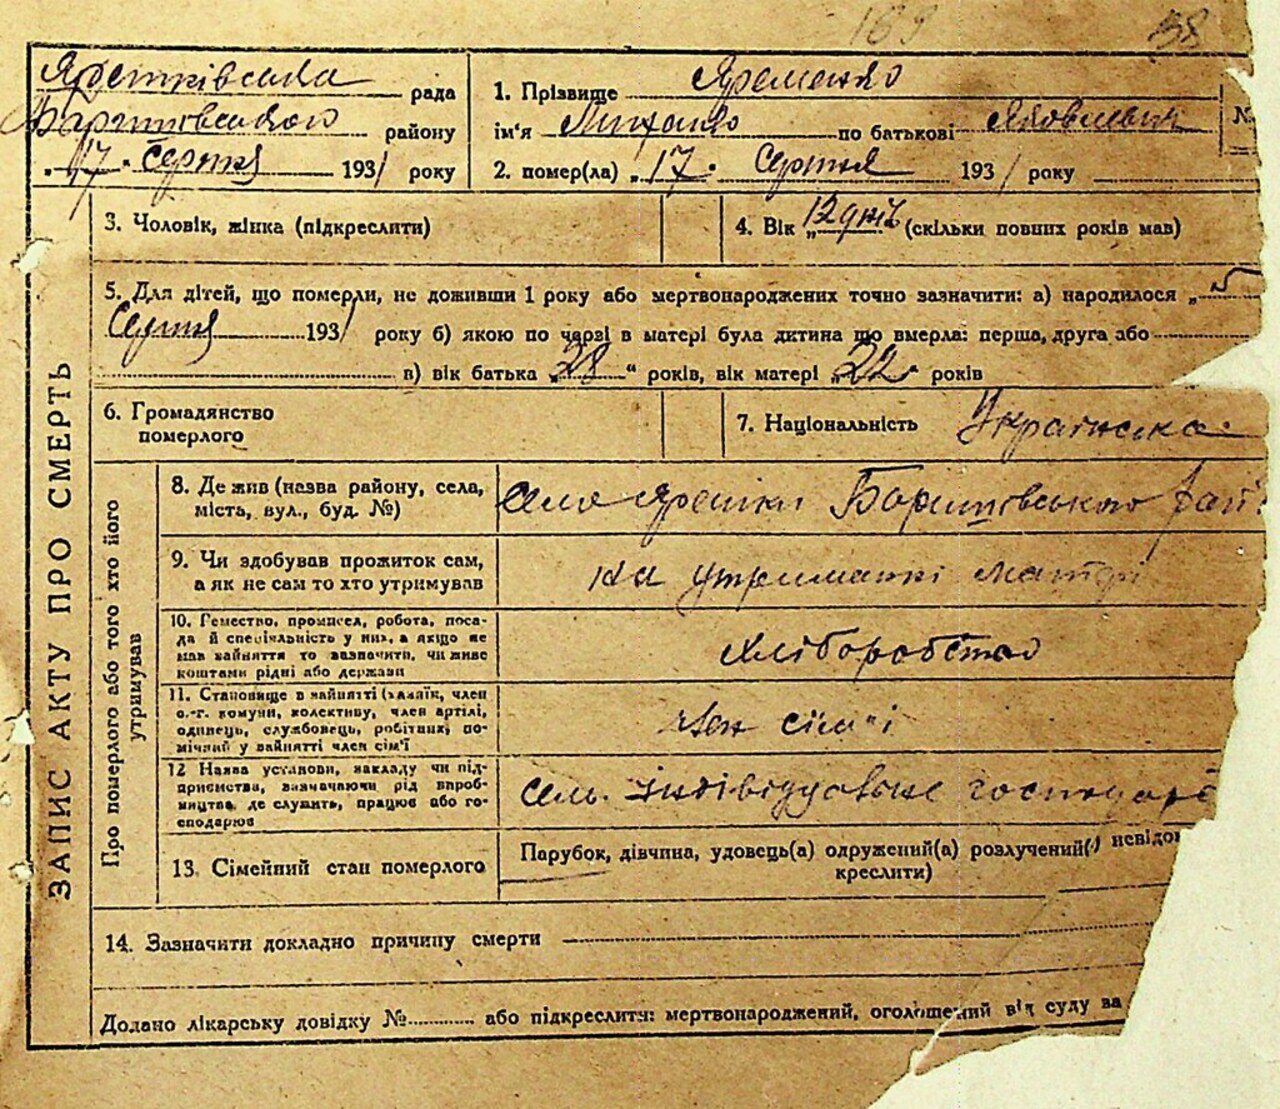 169 138
Яретківська рада
Баришівського району
"17" серпня 1931 року
1. Прізвище Яременко
ім'я Михайло по батькові Яковлевич
№
2. помер(ла) „17" Серпня 1931 року
3. Чоловік, жінка (підкреслити)
4. Вік „12 днів (скільки повних років мав)
5. Для дітей, що померли, не доживши 1 року або мертвонароджених точно зазначити: а) народилося „5
Серпня 1931 року б) якою по черзі в матері була дитина що вмерла: перша, друга або
в) вік батька „28" років, вік матері „22" років
6. Громадянство
померлого
7. Національність Українська
ЗАПИС АКТУ ПРО СМЕРТЬ
Про померлого або того хто його
утримував
8. Де жив (назва району, села,
мість, вул., буд. №)
село Яреські Баришівського рай.
9. Чи здобував прожиток сам,
а як не сам то хто утримував
на утриманні матері
10. Гемество, промисел, робота, поса-
да й спеціяльність у них, а якщо не
мав зайняття то зазначити, чи живе
коштами рідні або держави
хліборобство
11. Становище в зайнятті (хазяїн, член
с.-г. комуни, колективу, член артілі,
одинець, службовець, робітник, по-
мічний у зайнятті член сім'ї
член сім'ї
12 Назва установи, закладу чи під-
приємства, зазначаючи рід вироб-
ництва, де служить, працює або го-
сподарює
сель. індівідуальне господарс
13. Сімейний стан померлого
Парубок, дівчина, удовець(а) одружений(а) розлучений( ) невідо
креслити)
14. Зазначити докладно причину смерти
Додано лікарську довідку № або підкреслити: мертвонароджений, оголошений від суду за